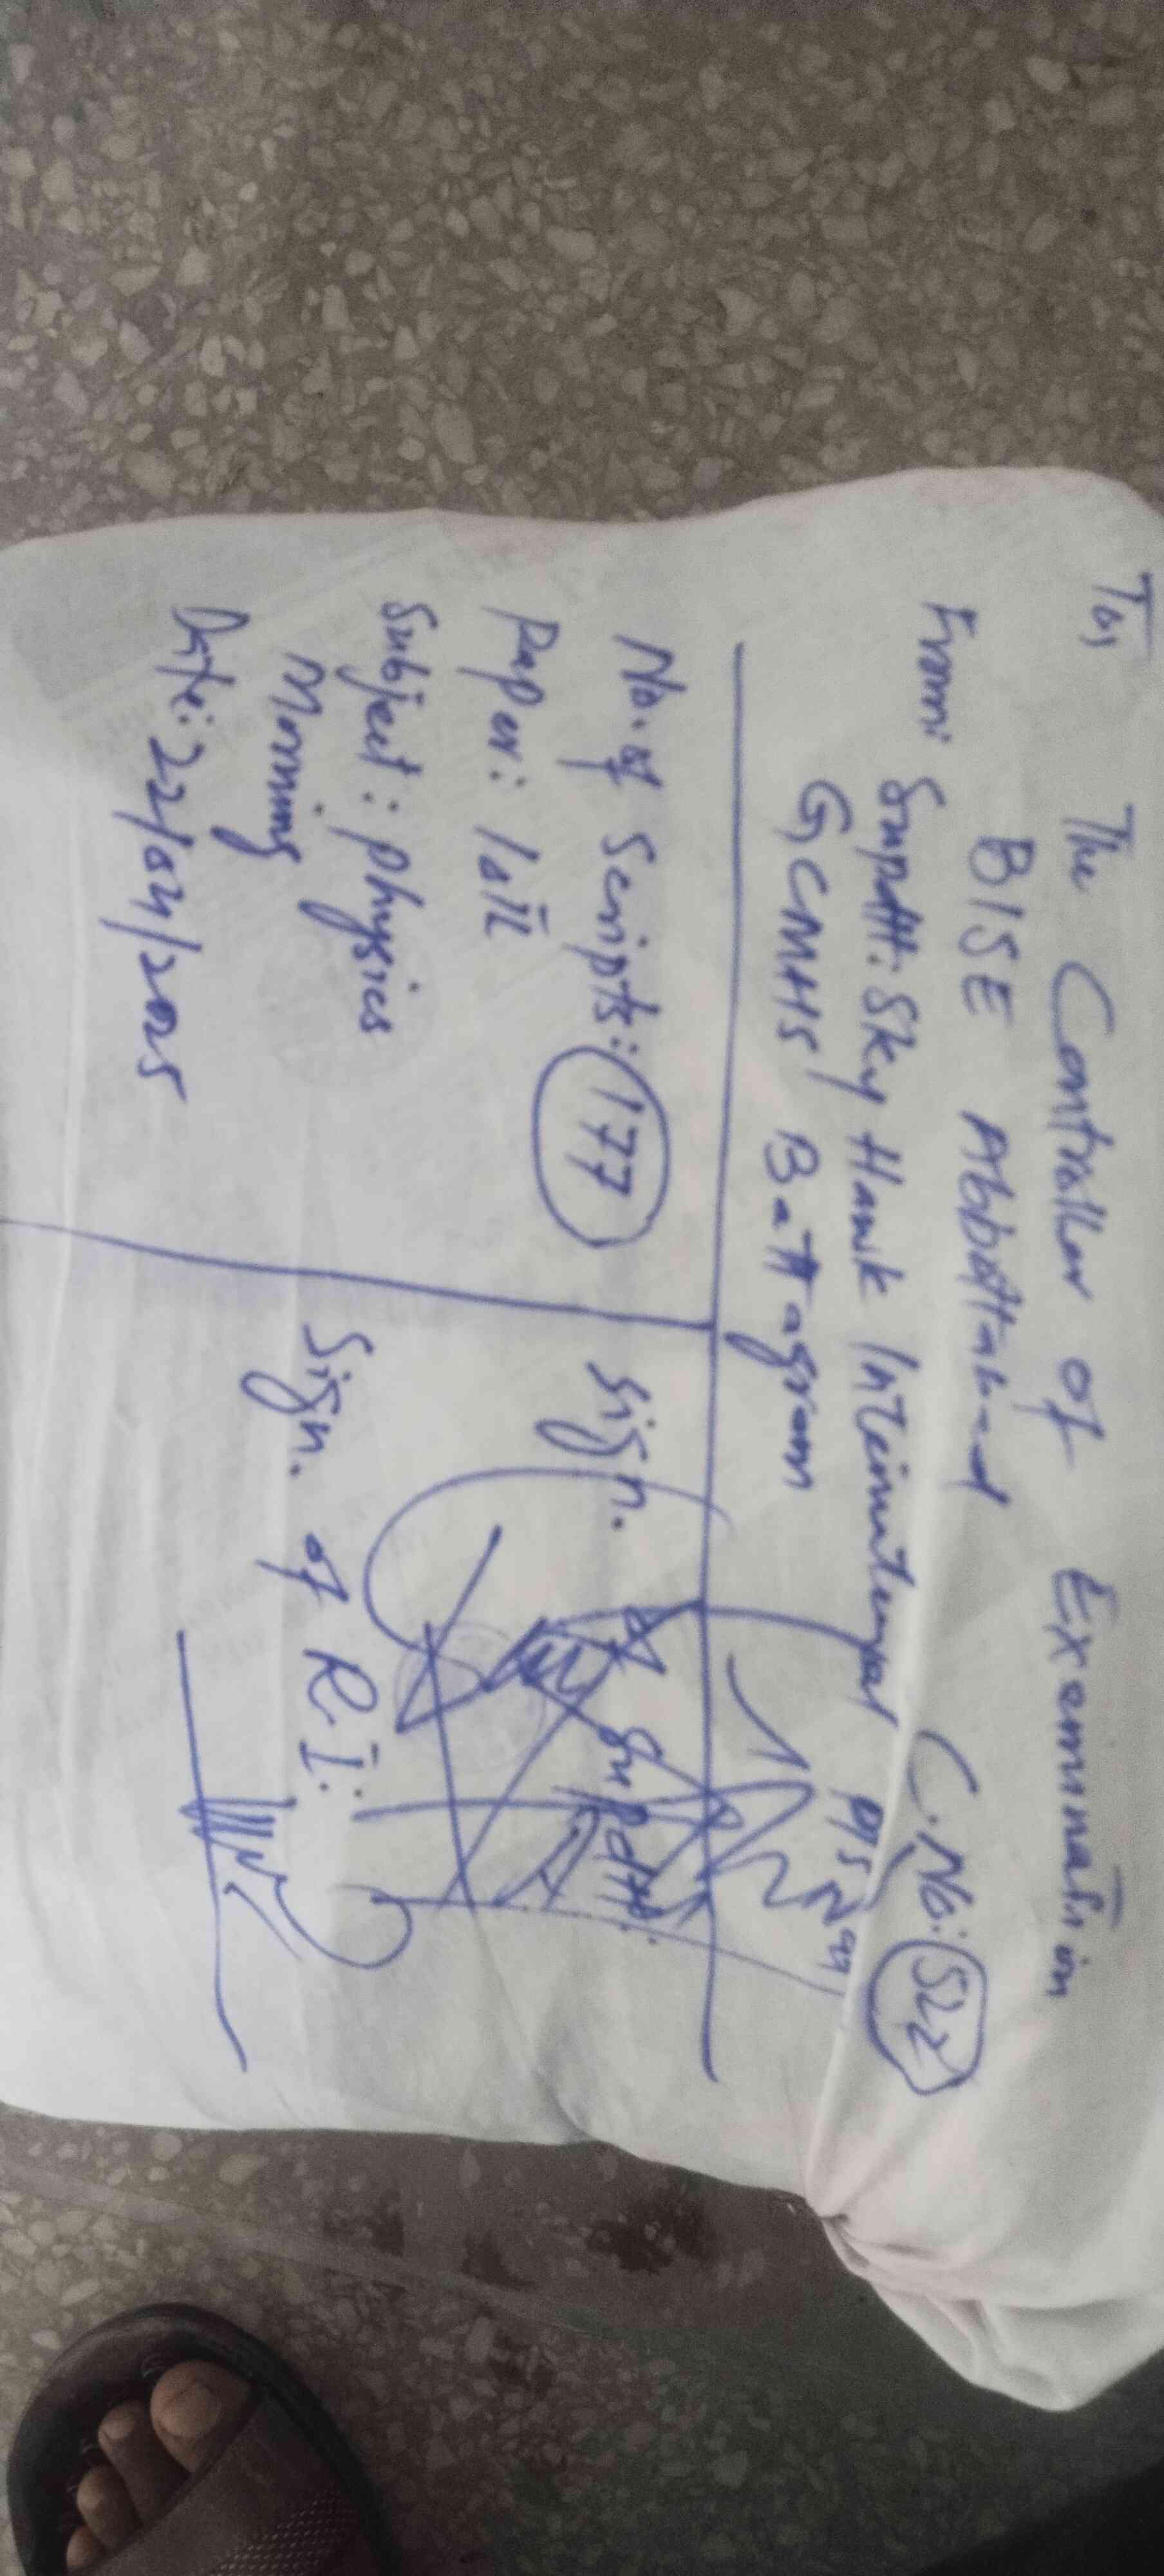 To, The Controller of Examination
BISE Abbottabad
C.No: 522
From: Supdtt: Sky Hawk International
GCMHS Battagram
No. of Scripts: 177
Paper: Ist
Subject: Physics
Morning
Date: 22/04/2025
Sign.
Supdtt.
Sign. of R.I: